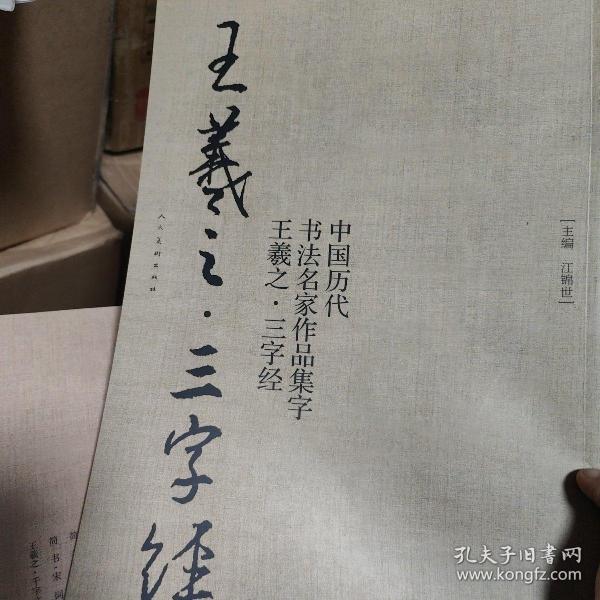 王羲之·三字经
人民美术出版社
中国历代
书法名家作品集字
王羲之·三字经
[主编 江锦世]
王羲之·千字
孔夫子旧书网
www.kongfz.com